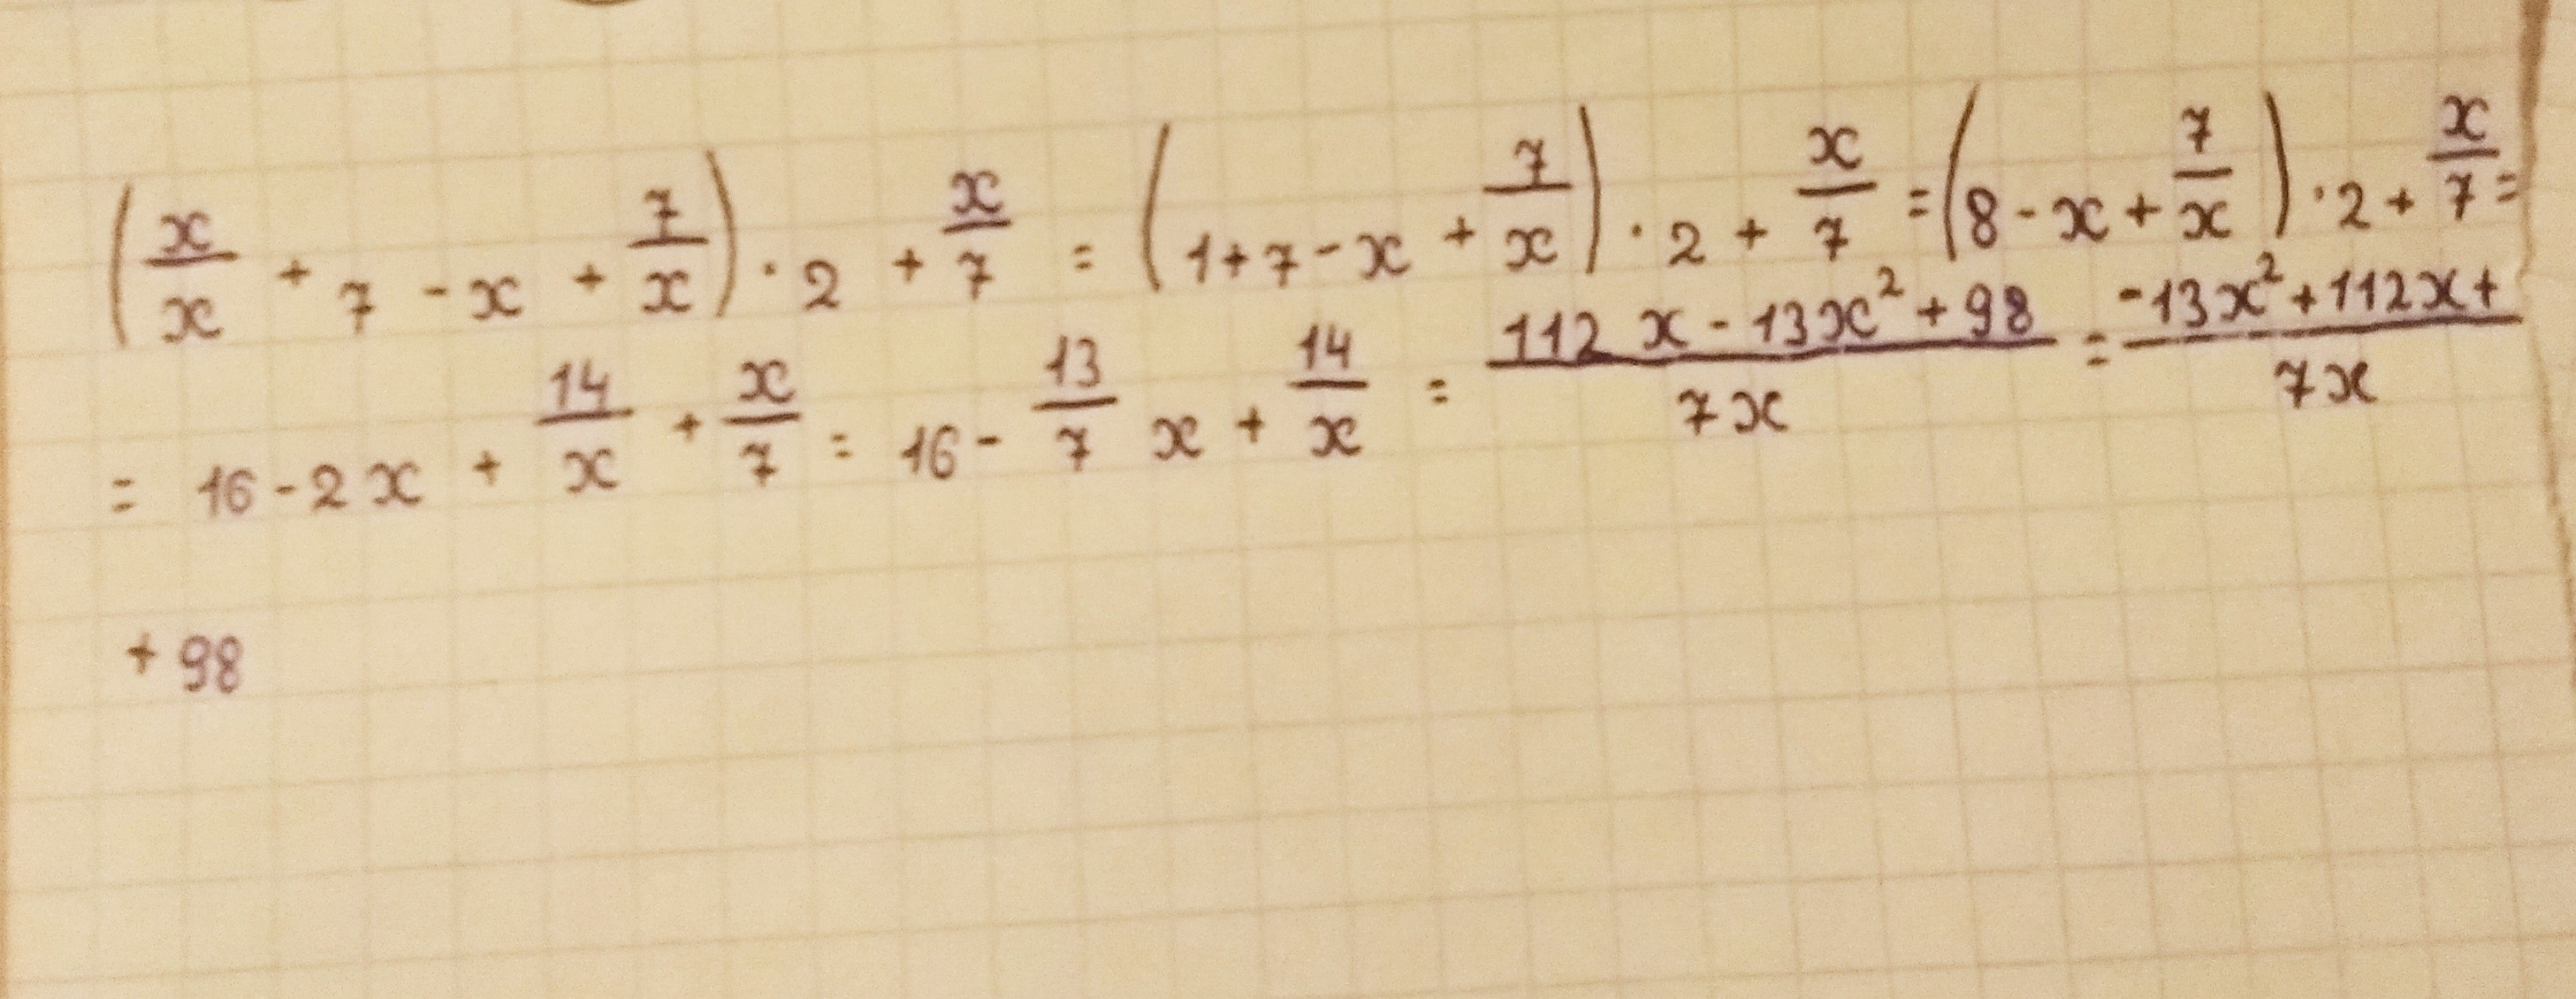 (x/x + 7 - x + 7/x) · 2 + x/7 = (1 + 7 - x + 7/x) · 2 + x/7 = (8 - x + 7/x) · 2 + x/7 =
= 16 - 2x + 14/x + x/7 = 16 - 13/7 x + 14/x = (112x - 13x² + 98)/(7x) = (-13x² + 112x +)/(7x)
+ 98